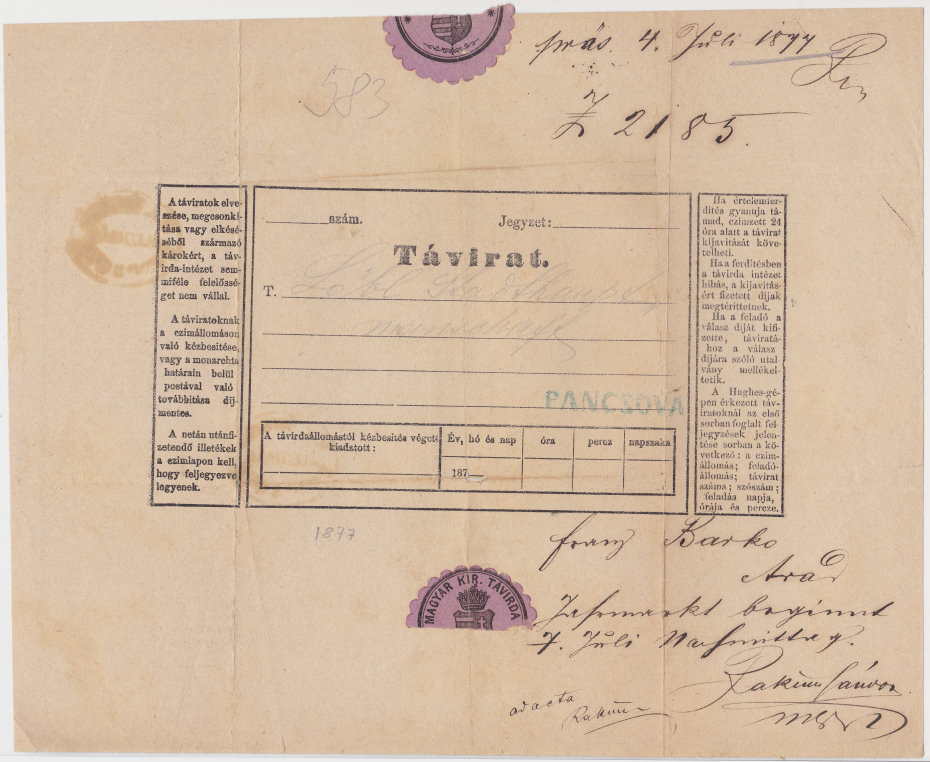 präs. 4. Juli 1877
Z 2185
583
A táviratok elve-
szése, megcsonkí-
tása vagy elkésé-
séből származó
károkért, a táv-
irda-intézet sem-
miféle felelőssé-
get nem vállal.
A táviratoknak
a czimállomáson
való kézbesitése,
vagy a monarchia
határain belül
postával való
továbbitása díj-
mentes.
A netán utánfi-
zetendő illetékek
a czimlapon kell,
hogy feljegyezve
legyenek.
szám.
Jegyzet:
Távirat.
T.
PANCSOVA
A távirdaállomástól kézbesités végett
kiadatott:
Év, hó és nap
óra
percz
napszaka
187
Ha értelemfer-
dités gyanuja tá-
mad, czimzett 24
óra alatt a távirat
kijavitását köve-
telheti.
Ha a ferditésben
a távirda intézet
hibás, a kijavitás-
ért fizetett dijak
megtérittetnek.
Ha a feladó a
válasz diját kifi-
zette, távirata-
hoz a válasz
dijára szóló utal-
vány mellékel-
tetik.
A Hughes-gé-
pen érkezett táv-
iratoknál az első
sorban foglalt fel-
jegyzések jelen-
tése sorban a kö-
vetkező: a czim-
állomás; feladó-
állomás; távirat
száma; szószám;
feladás napja,
órája és percze.
1877
MAGYAR KIR. TÁVIRDA
Franz Barko
Arad
Jahrmarkt beginnt
7. Juli Nachmittag.
ad acta